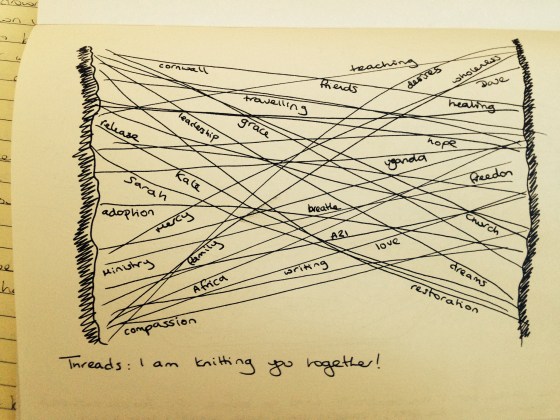 teaching
cornwall
desires
wholeness
friends
Dave
travelling
healing
release
leadership
grace
hope
uganda
Sarah
Kate
freedom
adoption
Mercy
breathe
church
A21
family
love
Ministry
writing
dreams
Africa
restoration
compassion
Threads: I am knitting you together!